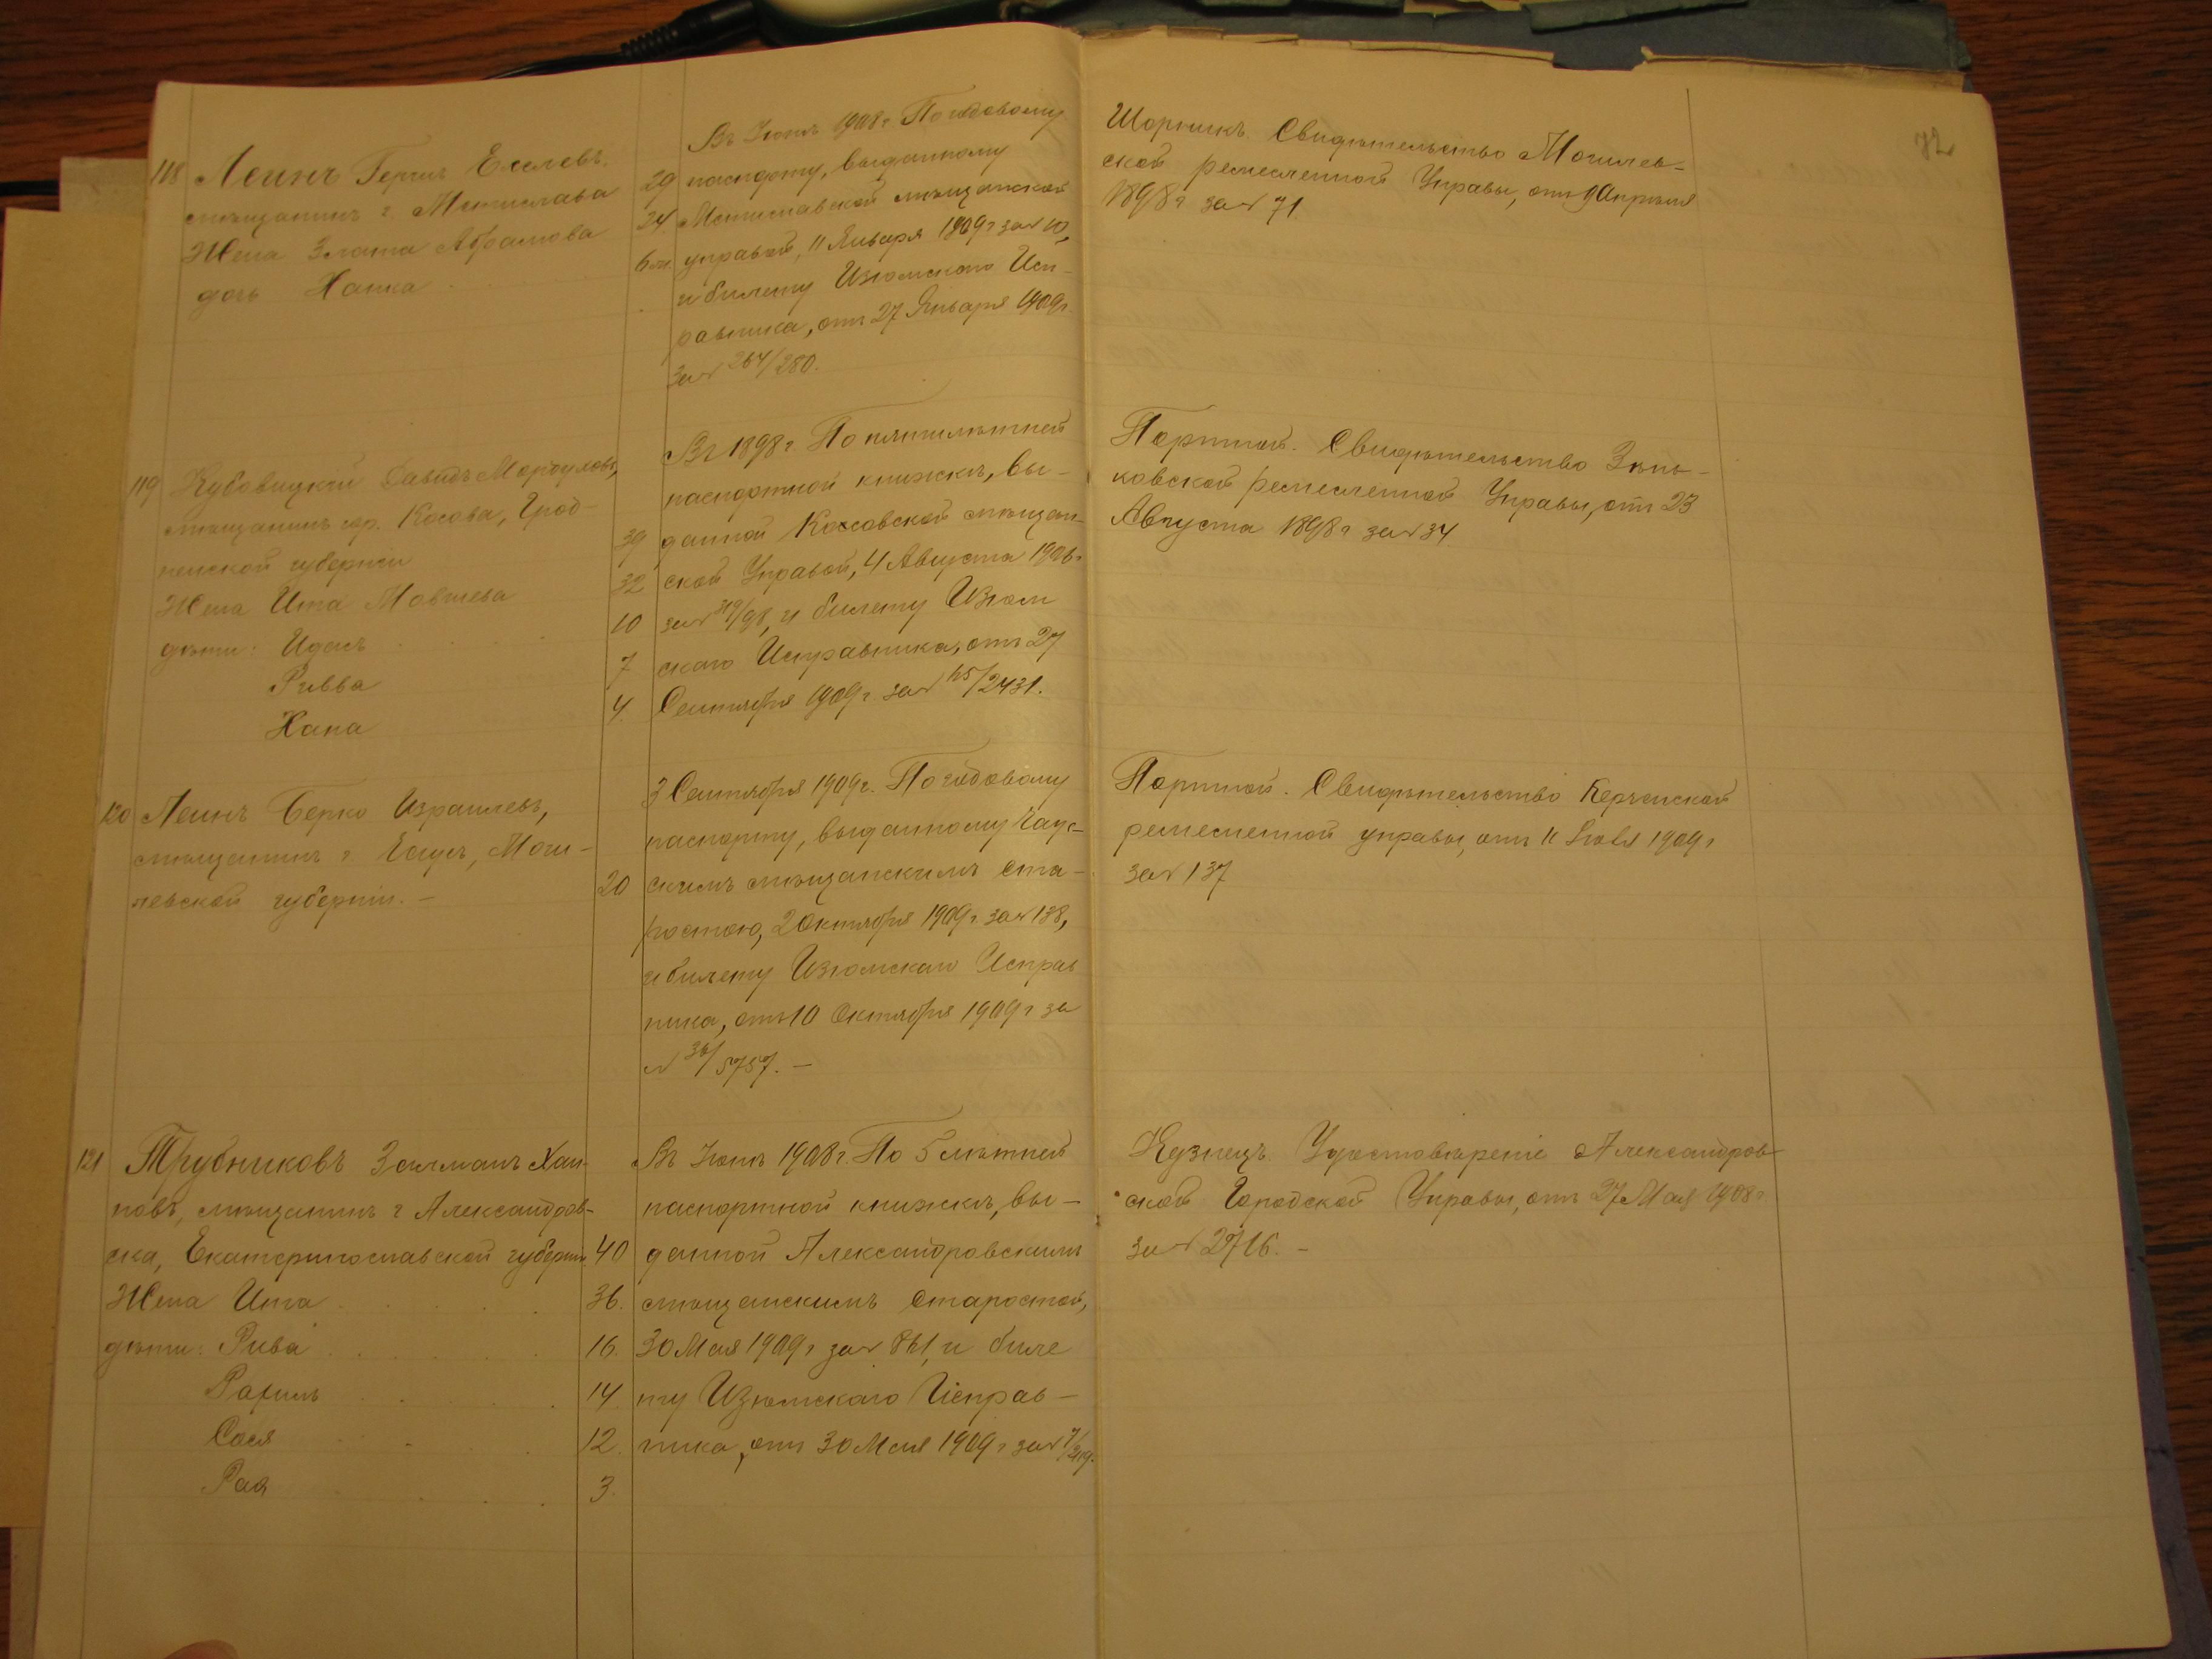 72
118 Леинъ Гершъ Еселевъ,
мѣщанинъ г. Мстиславля 29
Жена Злата Абрамова 24
дочь Ханка 6 м.
Въ Іюнѣ 1908 г. По годовому
паспорту, выданному
Мстиславской мѣщанской
управой, 11 Января 1909 г за № 10,
и билету Изюмскаго Исп-
равника, отъ 27 Января 1909 г.
за № 264/280.
Шорникъ. Свидѣтельство Могилев-
ской ремесленной Управы, отъ 9 Апрѣля
1898 г за № 71
119 Кубовицкій Давидъ
мѣщанинъ гор. Косова, Грод-
ненской губерніи 39
Жена Ита Мовшева 32
дѣти: Идесъ 10
Ривва 7
Хана 4.
Въ 1898 г По пятилѣтней
паспортной книжкѣ, вы-
данной Коссовской мѣщан-
ской Управой, 4 Августа 1906 г
за № 319/98, и билету Изюм
скаго Исправника, отъ 27
Сентября 1909 г. за № /2431.
Портной. Свидѣтельство Зѣнь-
ковской ремесленной Управы, отъ 23
Августа 1898 г за № 34
120 Леинъ Берко Израилевъ,
мѣщанинъ г. Чаусъ, Моги-
левской губерніи. — 20
3 Сентября 1909 г. По годовому
паспорту, выданному Чаус-
скимъ мѣщанскимъ ста-
ростою, 2 Октября 1909 г. за № 138,
и билету Изюмскаго Исправ
ника, отъ 10 Октября 1909 г за
№ 36/5757. —
Портной. Свидѣтельство Керченской
ремесленной управы, отъ 11 Іюля 1909 г
за № 137
121 Трубниковъ Залманъ Хаи-
новъ, мѣщанинъ г Александров-
ска, Екатеринославской губерніи 40
Жена Ита 36.
дѣти: Рива 16.
Рахиль 14.
Сося 12.
Рая 3.
Въ Іюнѣ 1908 г. По 5 лѣтней
паспортной книжкѣ, вы-
данной Александровскимъ
мѣщанскимъ старостой,
30 Мая 1909 г за № 861, и биле
ту Изюмскаго Исправ-
ника, отъ 30 Мая 1909 г за № 7/219.
Кузнецъ. Удостовѣреніе Александров-
ской Городской Управы, отъ 27 Мая 1908 г
за № 2716. —